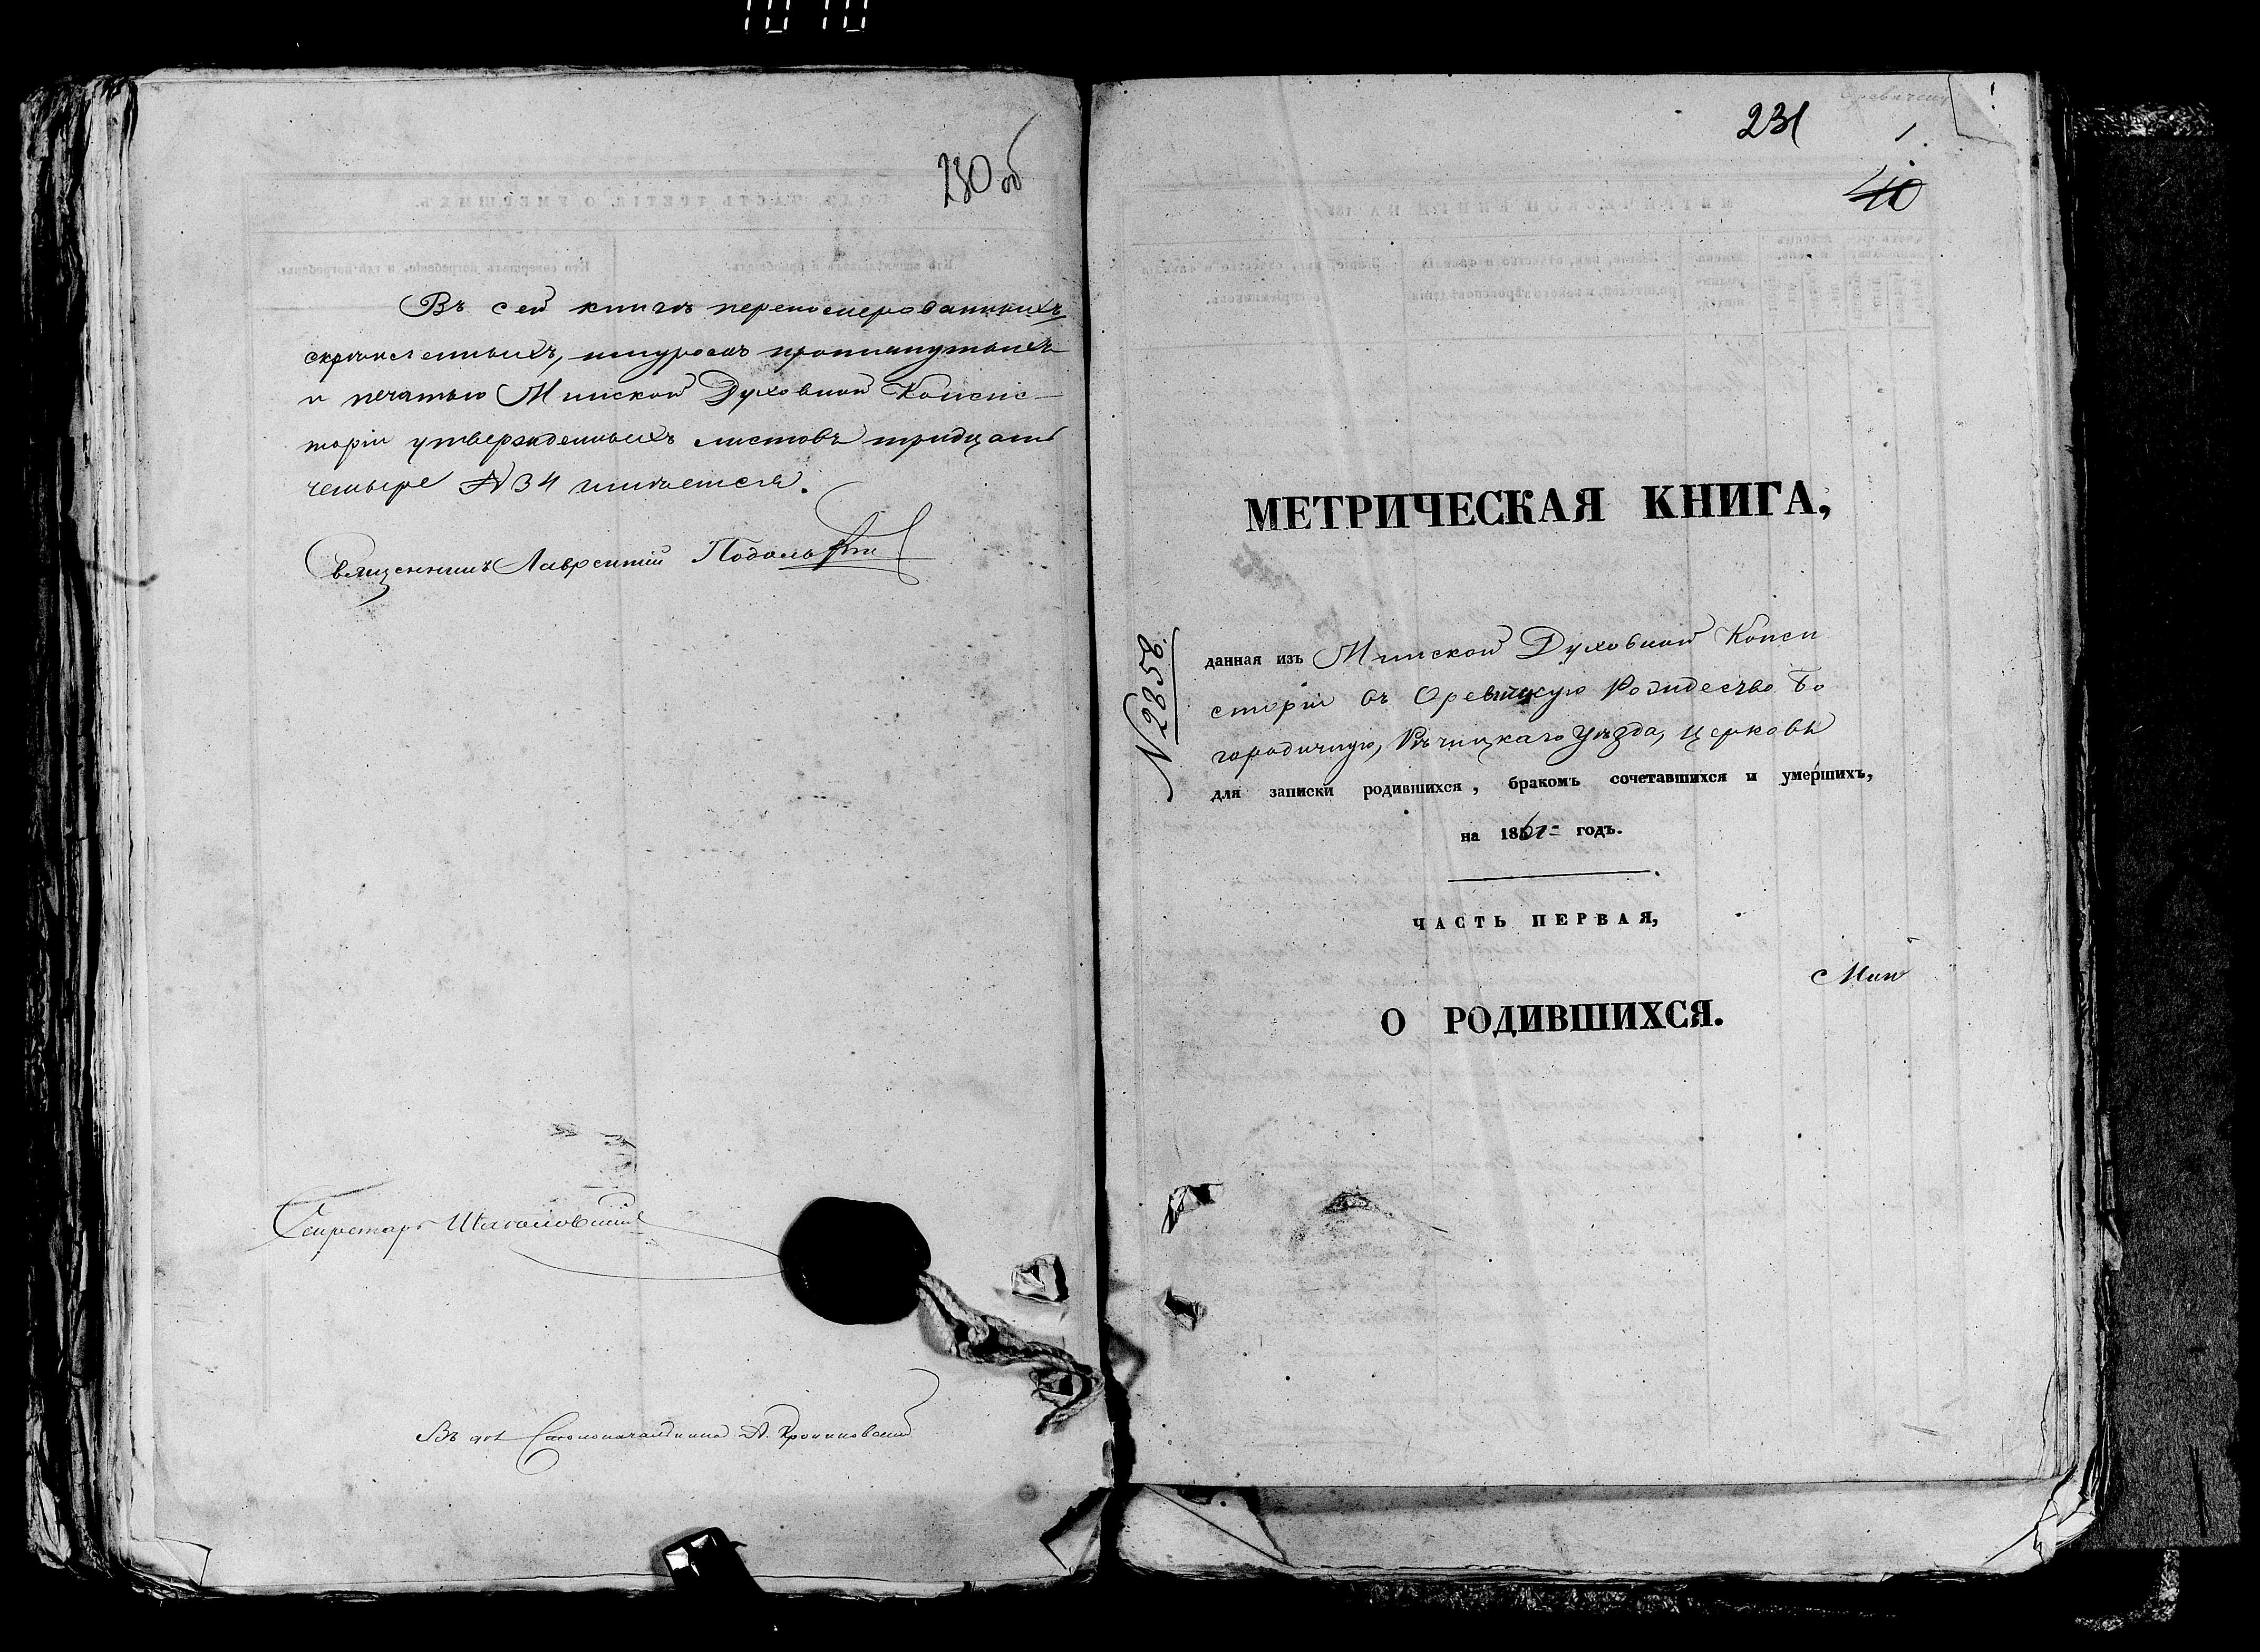 230 об
Въ сей книгѣ перенумерованныхъ
скрѣпленныхъ, шнуромъ протянутыхъ
и печатью Минской Духовной Консис-
торіи утвержденныхъ листовъ тридцать
четыре № 34 имѣется.
Священникъ Лаврентій
Секретарь
Столоначальника А.
231
1.
40
МЕТРИЧЕСКАЯ КНИГА,
№ 2858.
данная изъ Минской Духовной Конси
сторіи въ Оревицкую Рождество Бо
городичную, Рѣчицкаго Уѣзда, Церковь
для записки родившихся, бракомъ сочетавшихся и умершихъ,
на 1861 годъ.
ЧАСТЬ ПЕРВАЯ,
Мин
О РОДИВШИХСЯ.